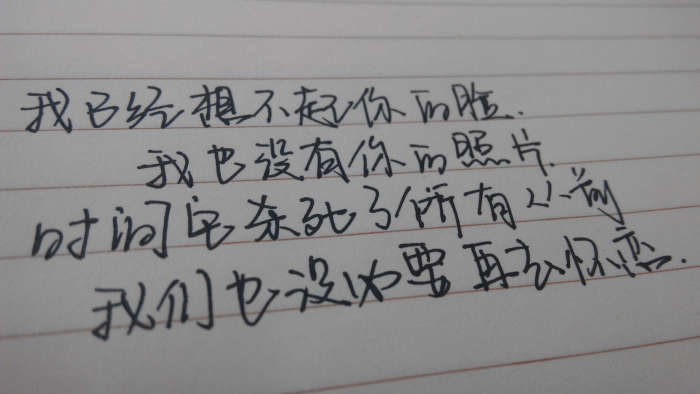 我已经想不起你的脸.
我也没有你的照片.
时间它杀死了所有以前
我们也没必要再去怀恋.